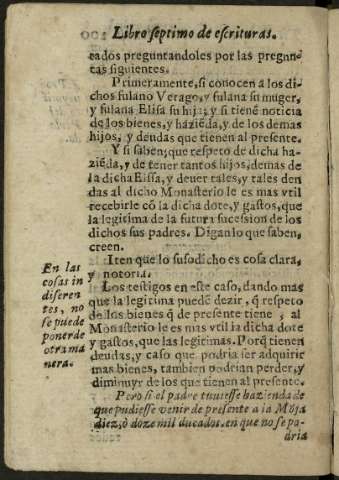 Libro septimo de escrituras.
tados preguntandoles por las pregun-
tas siguientes.
Primeramente, si conocen a los di-
chos fulano Verago, y fulana su muger,
y fulana Elisa su hija; y si tienē noticia
de los bienes, y haziēda, y de los demas
hijos, y deudas que tienen al presente.
Y si saben, que respeto de dicha ha-
ziēda, y de tener tantos hijos, demas de
la dicha Elisa, y dever tales, y tales deu
das al dicho Monasterio le es mas vtil
recebirle cō la dicha dote, y gastos, que
la legitima de la futura sucession de los
dichos sus padres. Digan lo que saben,
creen.
Iten que lo susodicho es cosa clara,
y notoria.
Los testigos en este caso, dando mas
que la legitima puedē dezir, q̄ respeto
de los bienes q̄ de presente tiene, al
Monasterio le es mas vtil la dicha dote
y gastos, que las legitimas. Porq̄ tienen
deudas, y caso que podria ser adquirir
mas bienes, tambien podrian perder, y
diminuyr de los que tienen al presente.
Pero si el padre tuuiesse hazienda de
que pudiesse venir de presente a la Mōja
diez, ò doze mil ducados, en que no se po-
dria
En las
cosas in
diferen
tes, no
se puede
poner de
otra ma
nera.